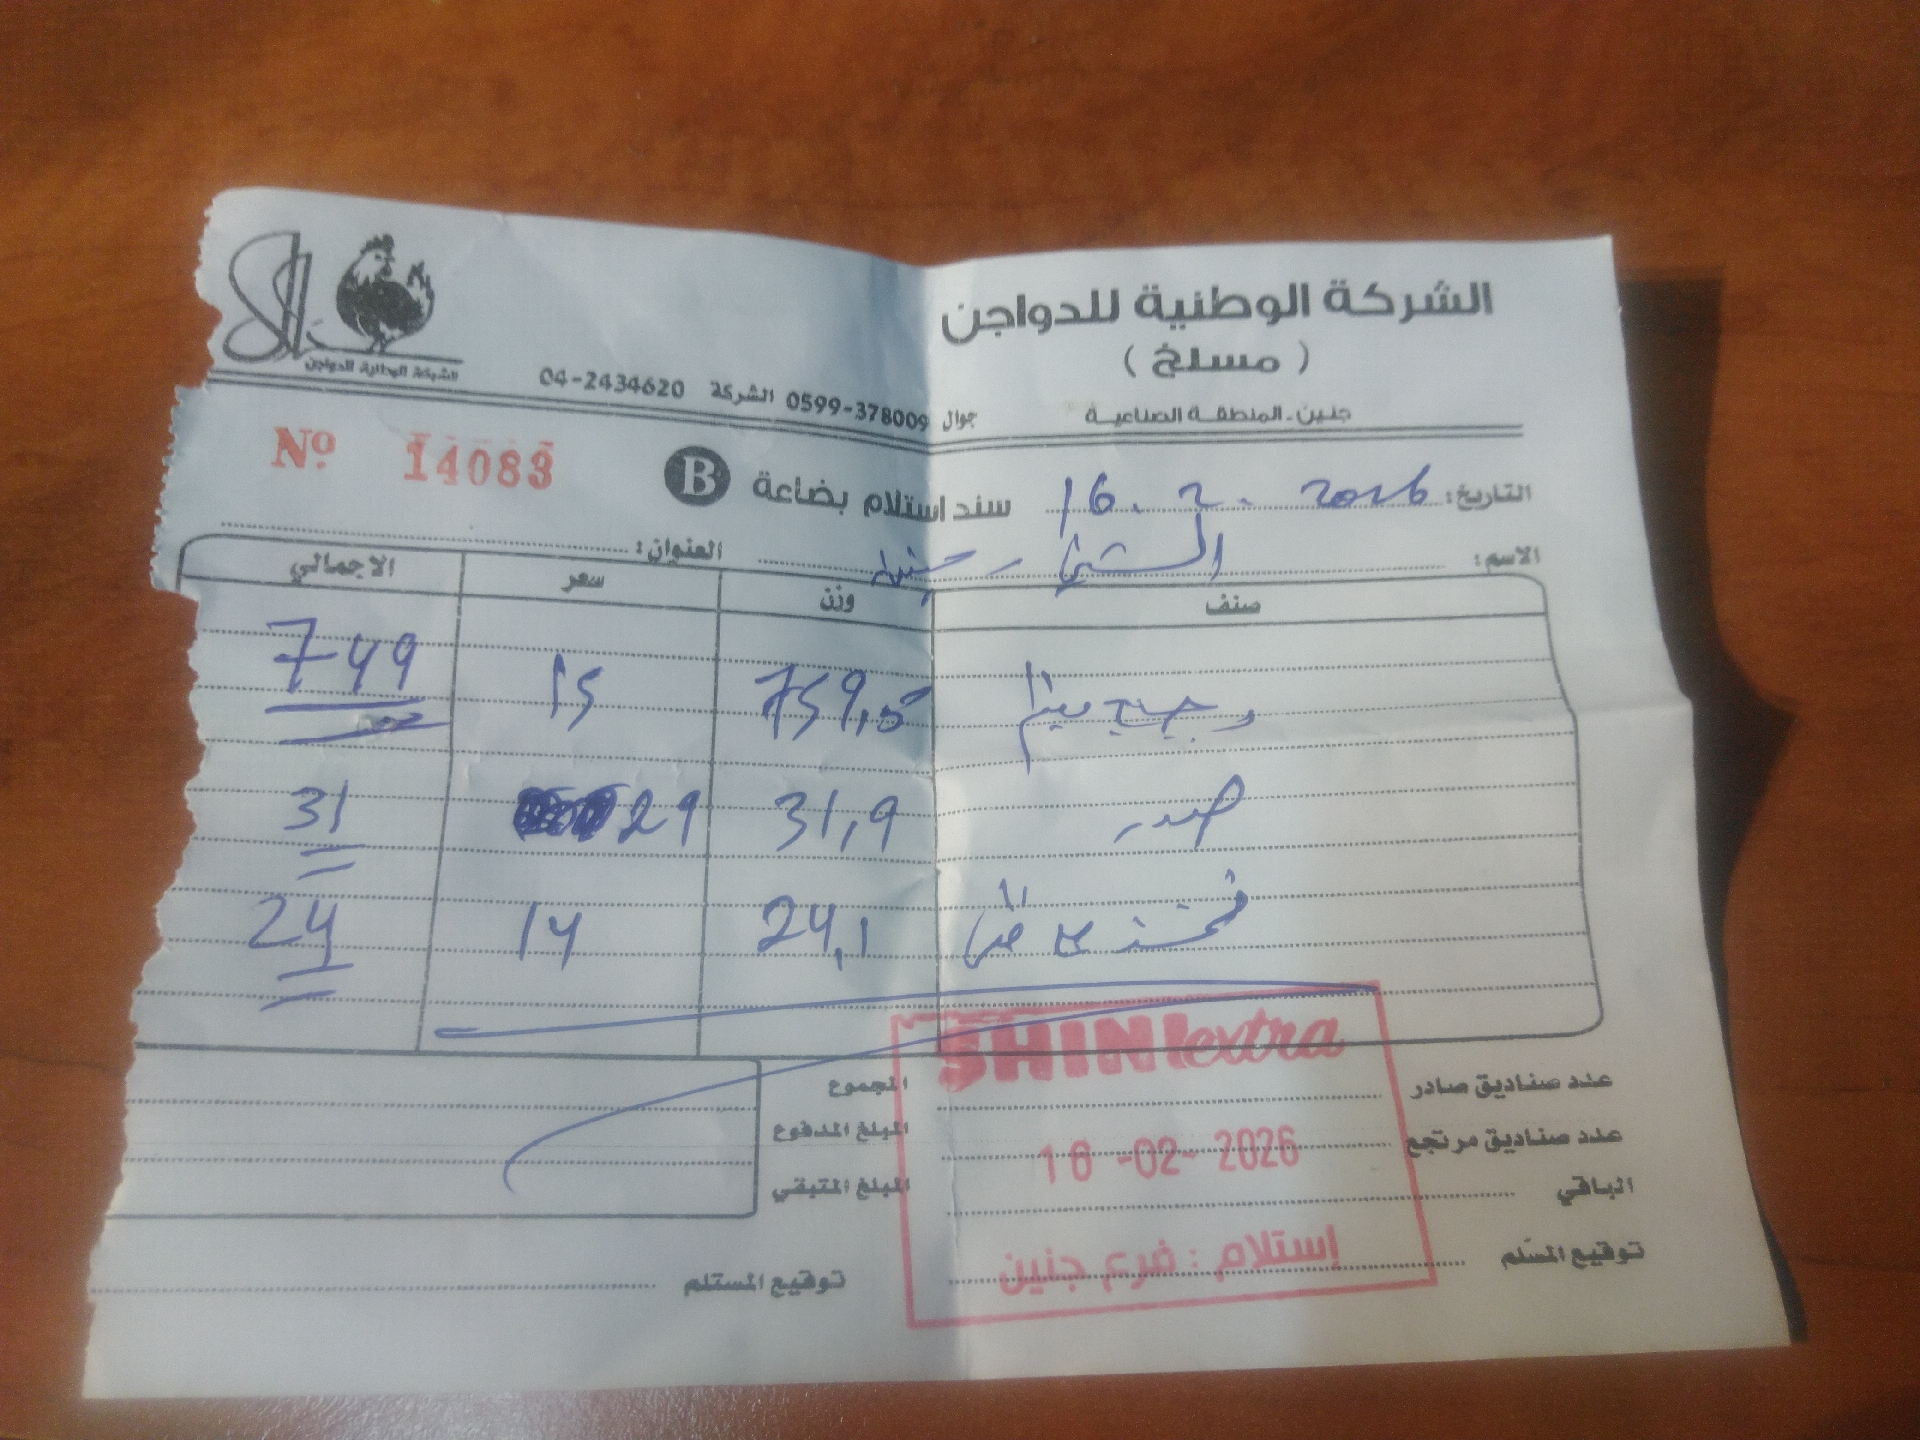 الشركة الوطنية للدواجن
( مسلخ )
جنين - المنطقة الصناعية
جوال 0599-378009 الشركة 04-2434620
الشركة الوطنية للدواجن
التاريخ: 16. 2. 2026
سند استلام بضاعة B
Nº 14083
الاسم: الشني - جنين
العنوان:
صنف وزن سعر الاجمالي
دجاج 759,5 15 749
صدر 31,9 29 31
24,1 14 24
عدد صناديق صادر
عدد صناديق مرتجع
الباقي
توقيع المسّلم
المجموع
المبلغ المدفوع
المبلغ المتبقي
توقيع المستلم
SHINI extra
16-02-2026
إستلام : فرع جنين